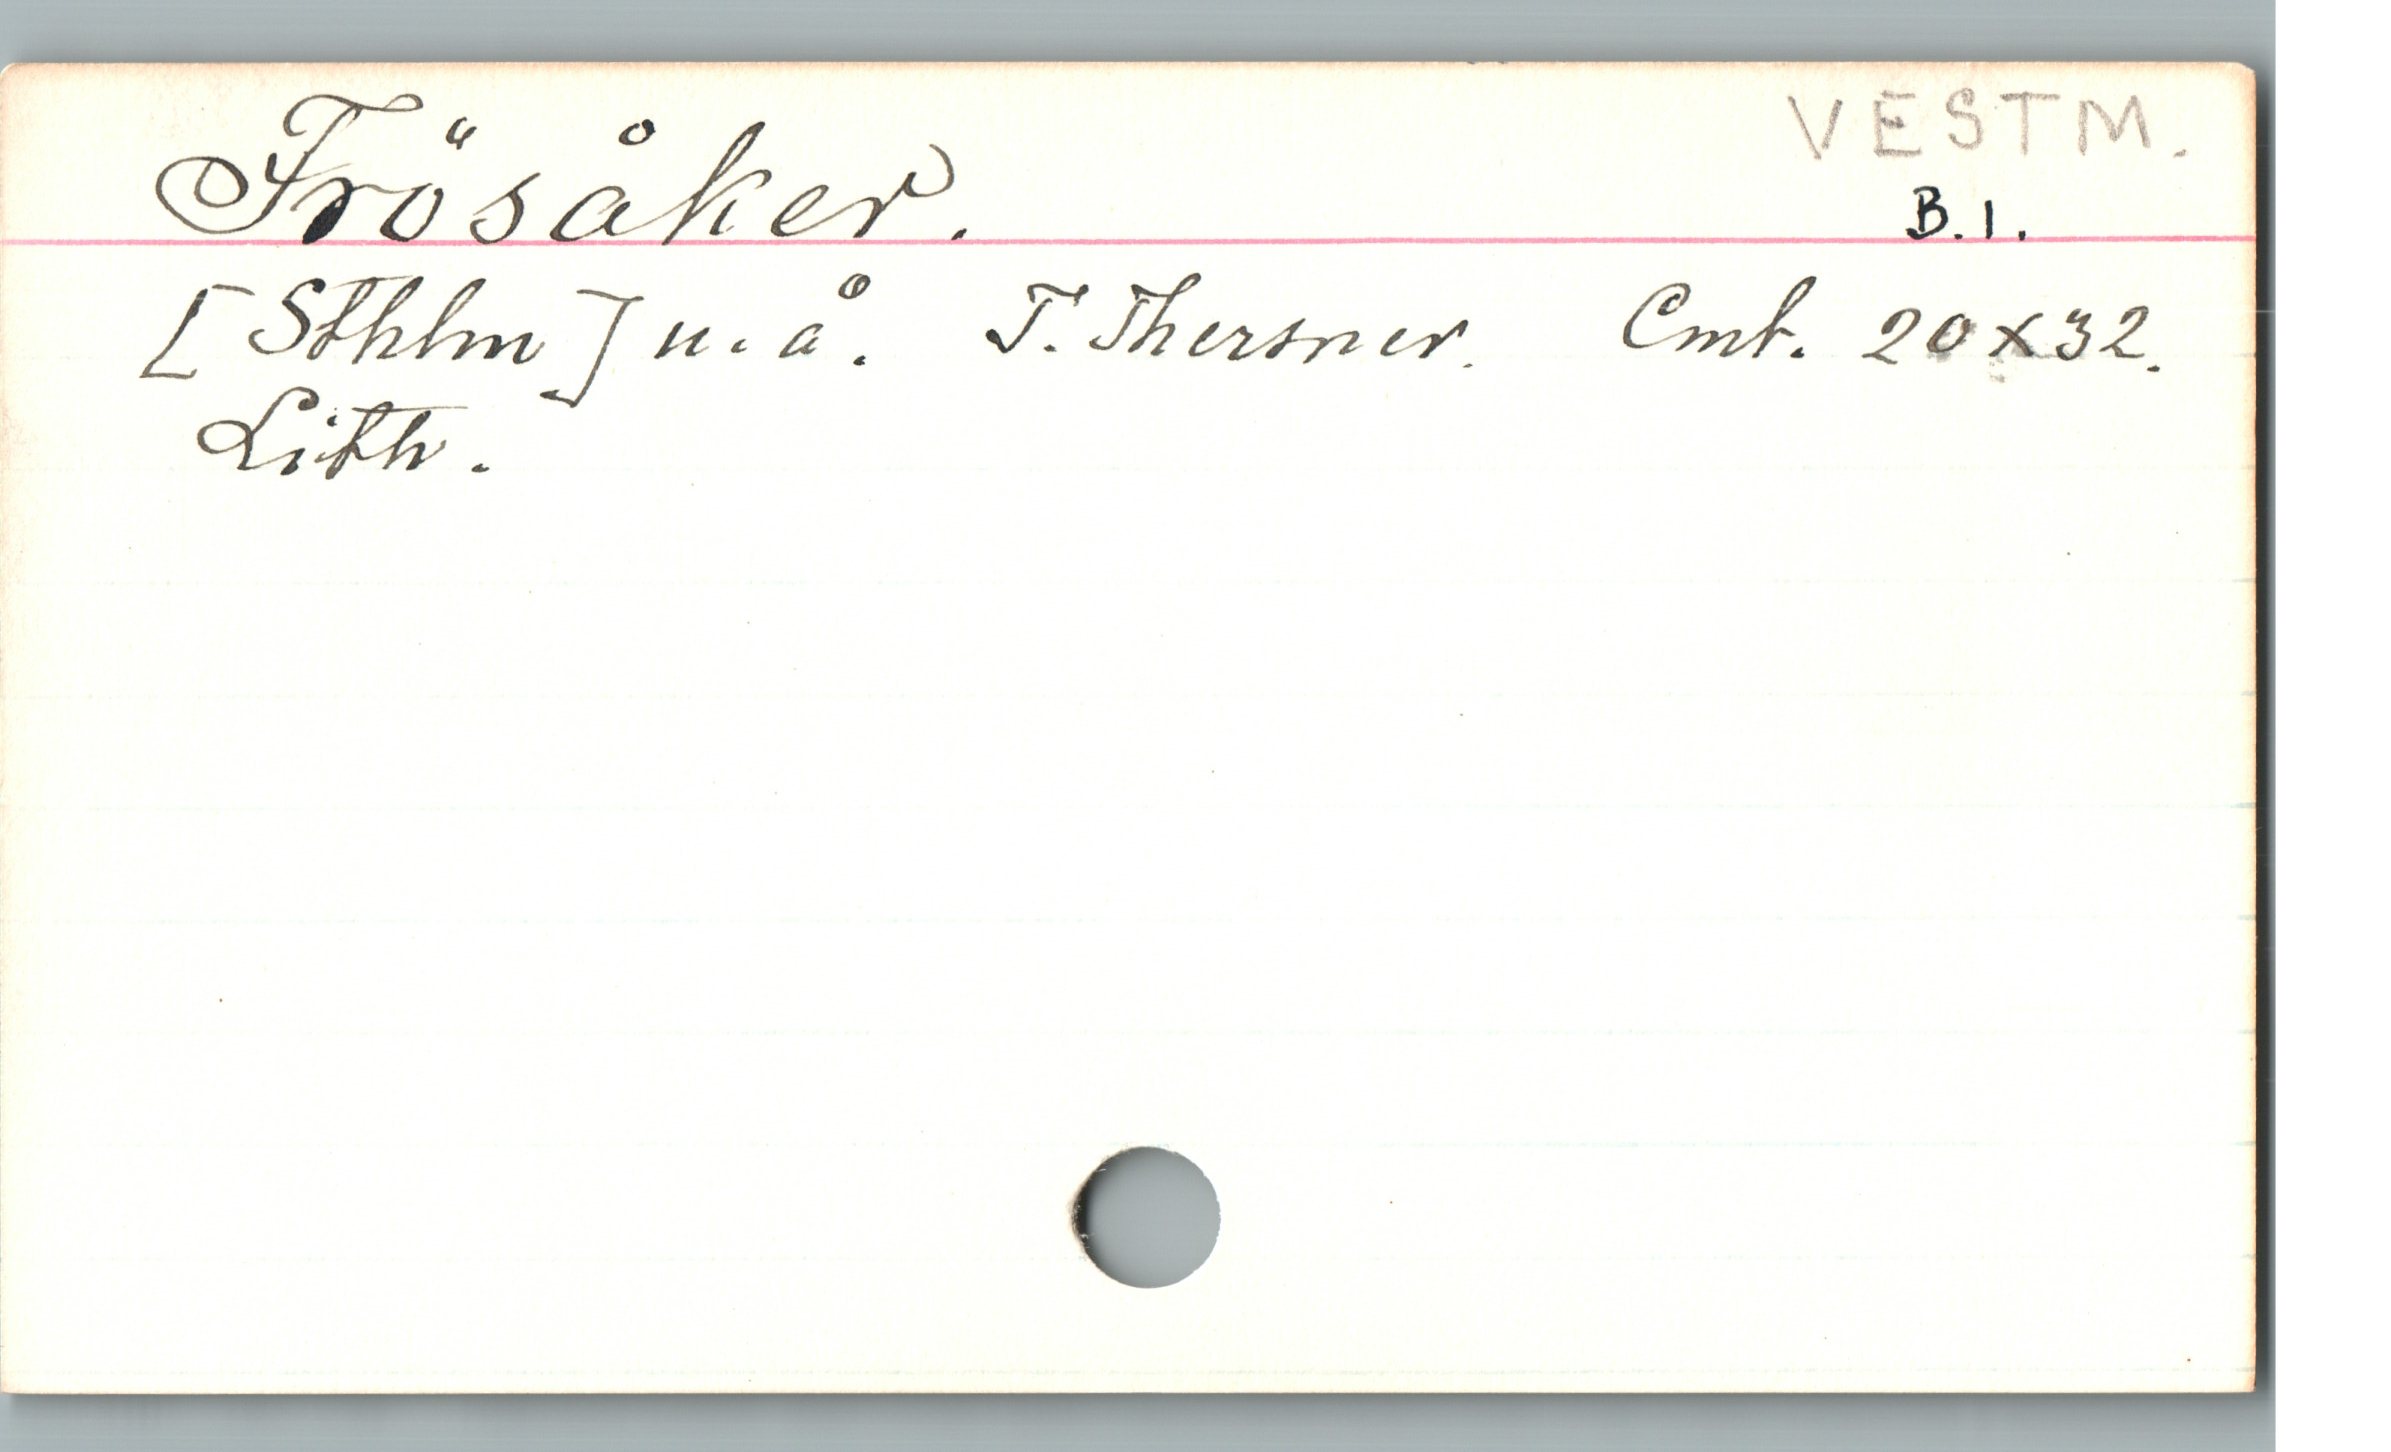 VESTM.
Frösåker.
B.1.
[Sthlm] u.å. T. Thersner. Cmt. 20x32.
Lith.